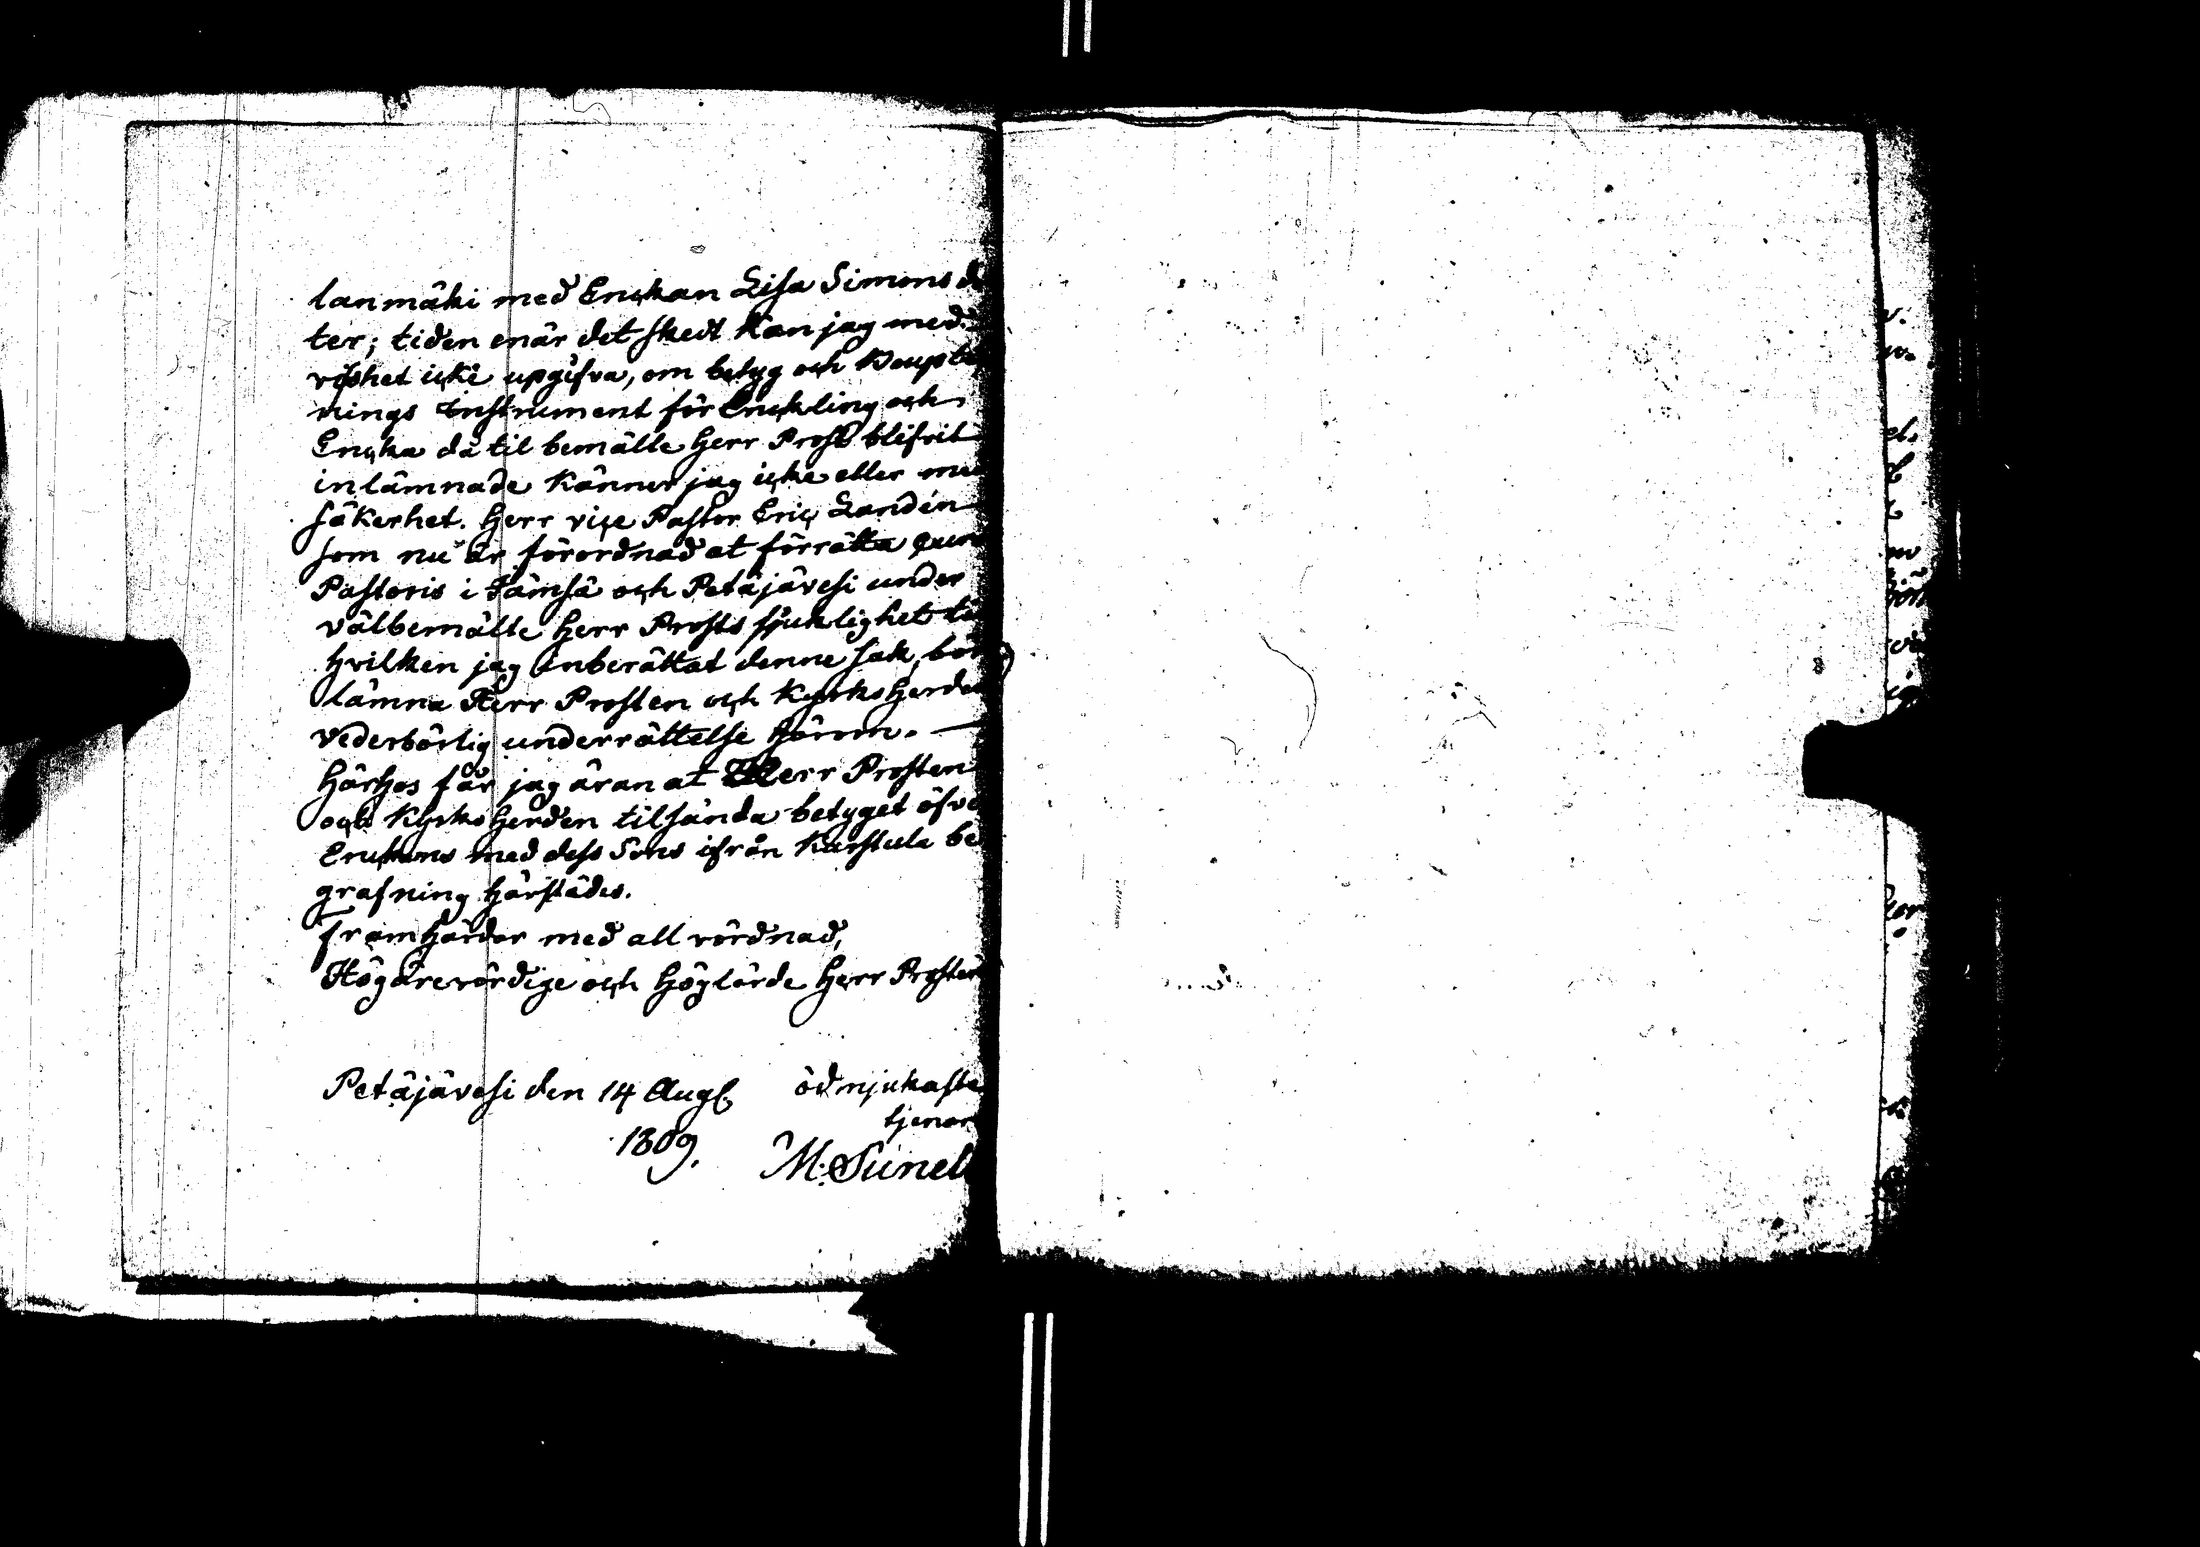 lanmäki med Enckan Lisa Simons d
ter; tiden enär det skedt kan jag med
visshet icke upgifva, om betyg och
nings Instrument för Enckling och
Encka då til bemälte Herr Prost blifvit
inlämnade känner jag icke eller med
säkerhet. Herr vice Pastor Eric Landén
som nu är förordnad at förrätta
Pastoris i Jämsä och Petäjävesi under
välbemälte Herr Prosts sjuklighet
hvilken jag inberättat denne sak, bör
lämna Herr Prosten och Kyrkoherden
vederbörlig underrättelse härom. —
Härhos får jag äran at Herr Prosten
och Kyrkoherden tilsända betyget öfve
Enckans med dess Sons ifrån Karstula be
grafning härstädes.
framhärdar med all vördnad,
Högärevördige och Höglärde Herr Prosten
Petäjävesi den 14 Aug. ödmjukaste
tjenar
1809. M: Sunel